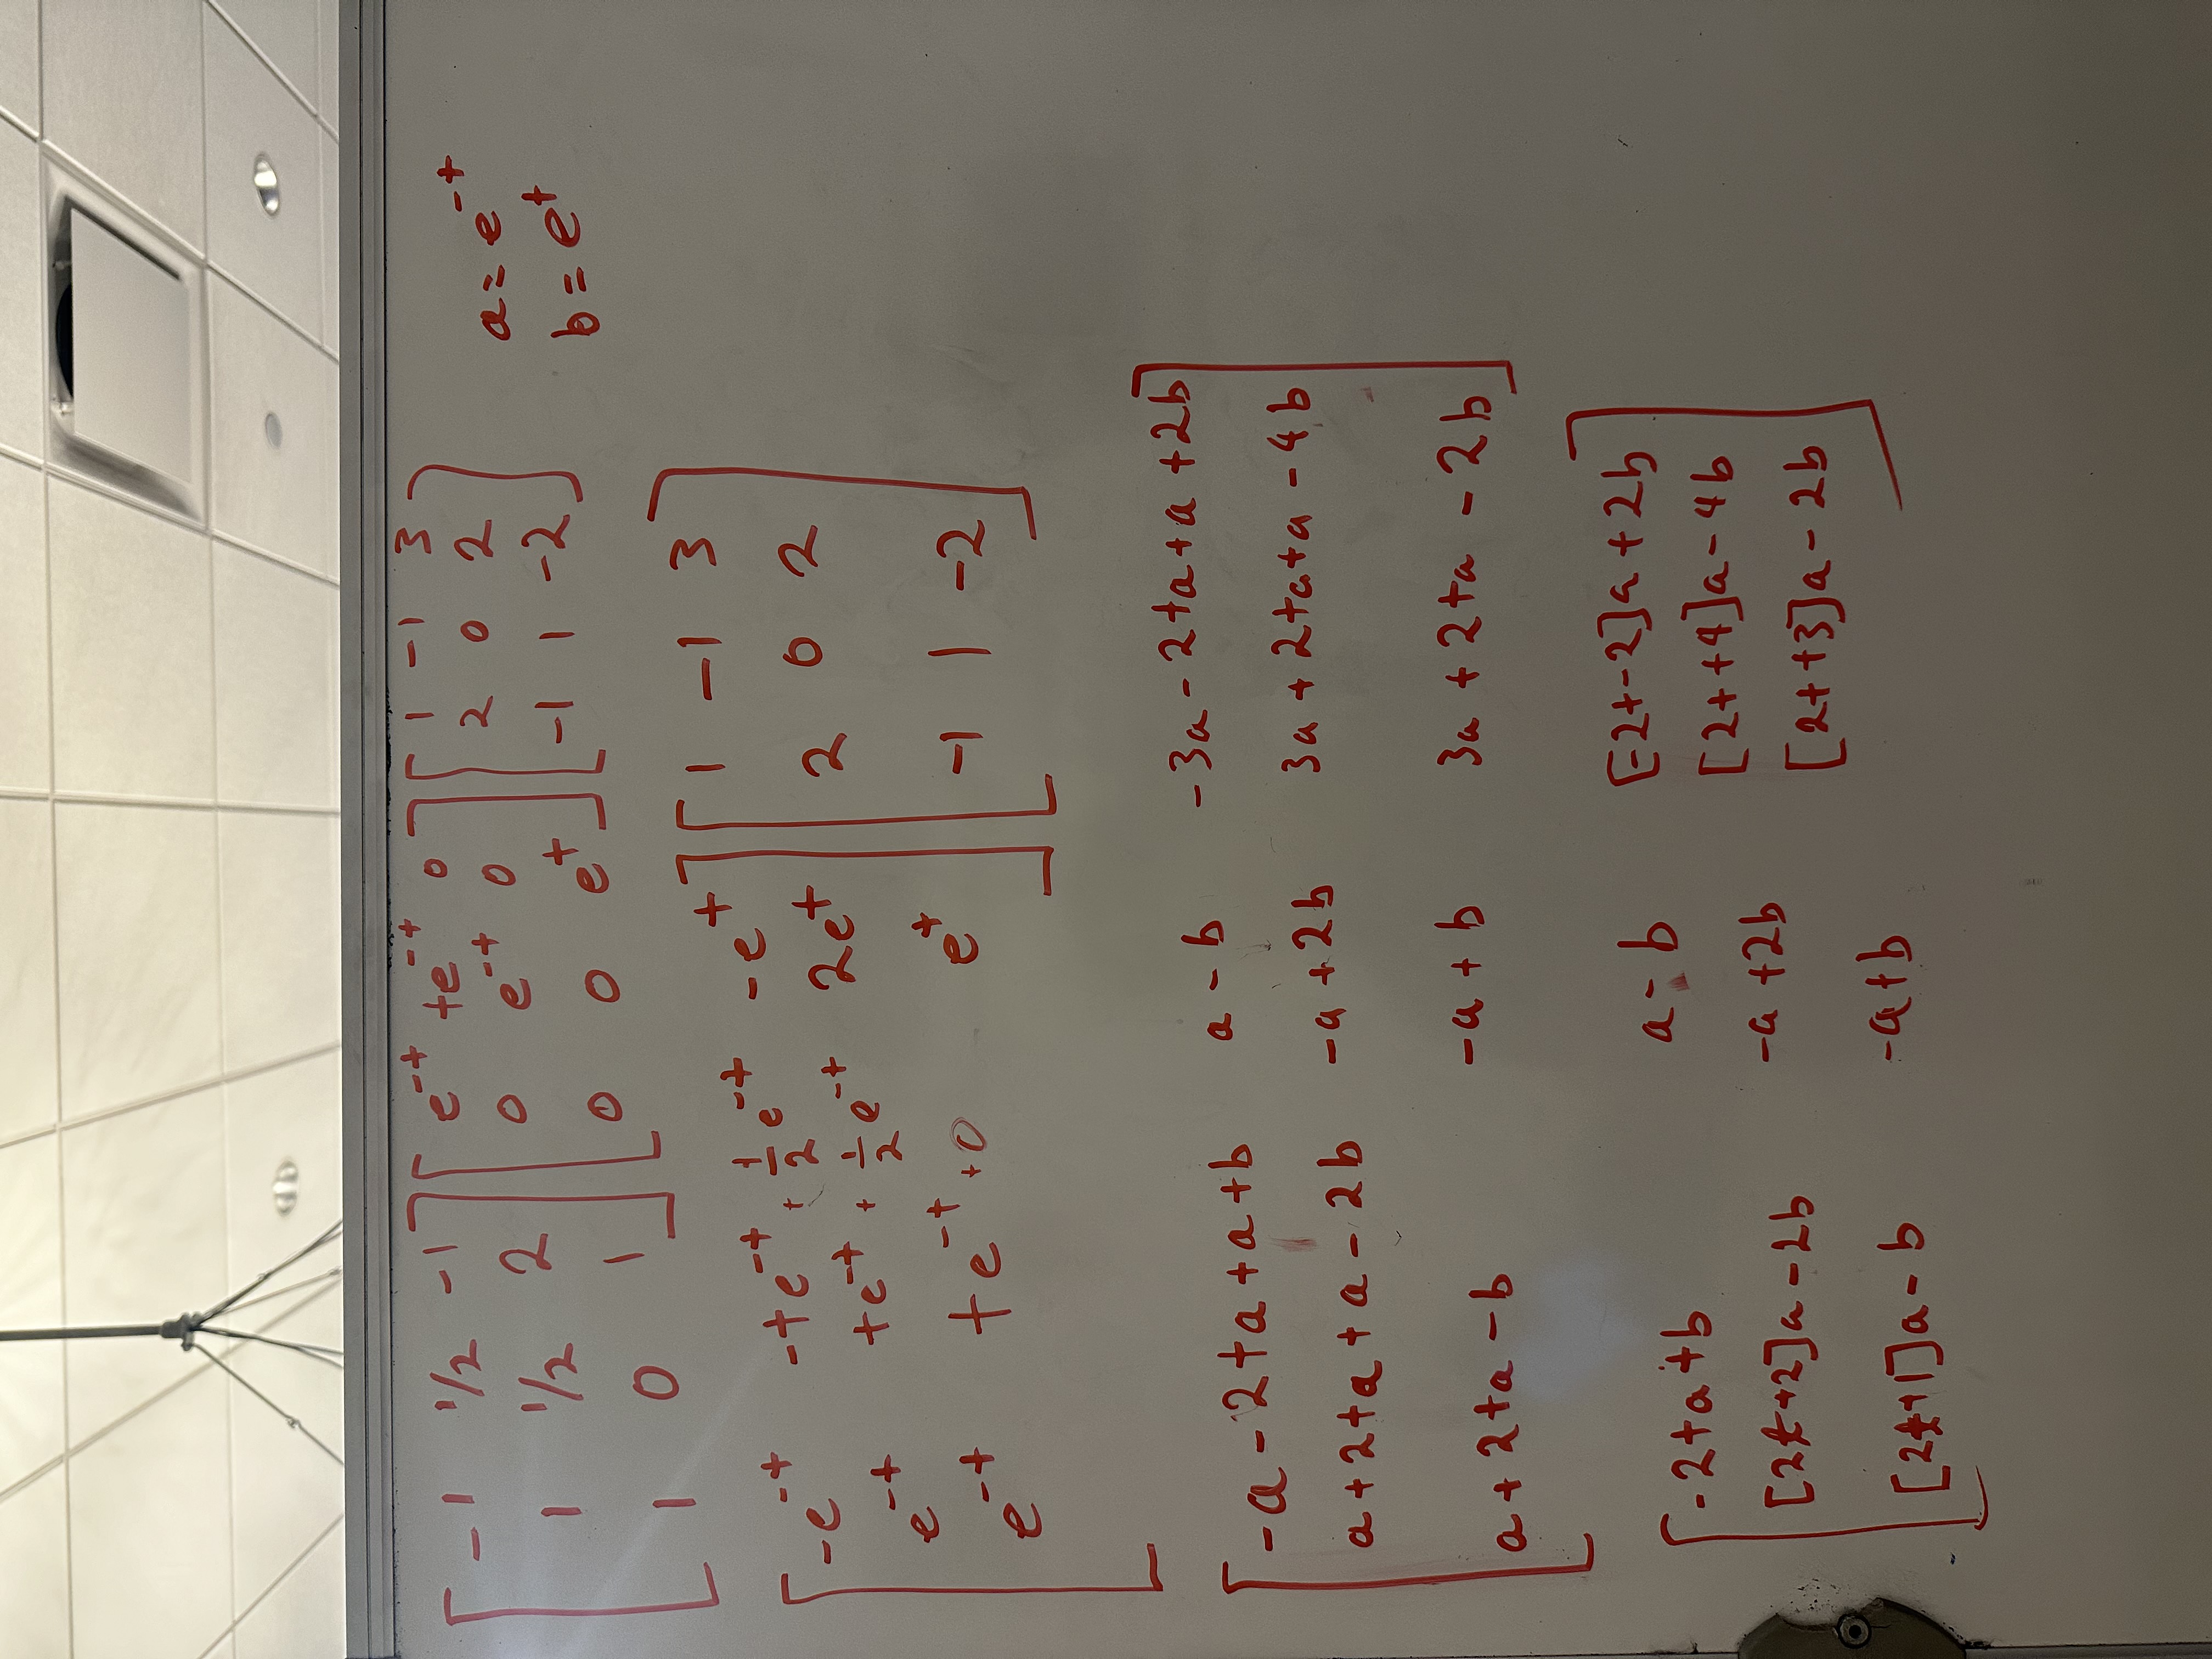 [ -1 1/2 -1 ] [ e^-t te^-t 0 ] [ 1 -1 3 ]
[ 1 1/2 2 ] [ 0 e^-t 0 ] [ 2 0 2 ]
[ 1 0 1 ] [ 0 0 e^t ] [ -1 1 -2 ]
a = e^-t
b = e^t
[ -e^-t -te^-t + 1/2 e^-t -e^t ] [ 1 -1 3 ]
[ e^-t te^-t + 1/2 e^-t 2e^t ] [ 2 0 2 ]
[ e^-t te^-t + 0 e^t ] [ -1 1 -2 ]
[ -a - 2ta + a + b a - b -3a - 2ta + a + 2b ]
[ a + 2ta + a - 2b -a + 2b 3a + 2ta + a - 4b ]
[ a + 2ta - b -a + b 3a + 2ta - 2b ]
[ -2ta + b a - b [-2t-2]a + 2b ]
[ [2t+2]a - 2b -a + 2b [2t+4]a - 4b ]
[ [2t+1]a - b -a + b [2t+3]a - 2b ]